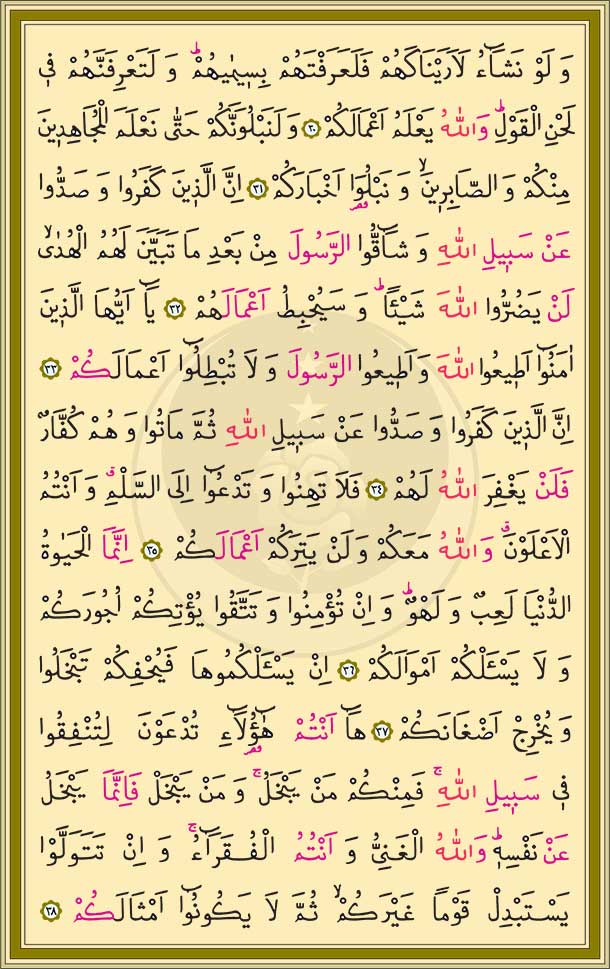 وَ لَوْ نَشَٓاءُ لَاَرَيْنَاكَهُمْ فَلَعَرَفْتَهُمْ بِسِيمٰيهُمْۜ وَ لَتَعْرِفَنَّهُمْ فٖى
لَحْنِ الْقَوْلِۜ وَاللّٰهُ يَعْلَمُ اَعْمَالَكُمْ ٣٠ وَ لَنَبْلُوَنَّكُمْ حَتّٰى نَعْلَمَ الْمُجَاهِدٖينَ
مِنْكُمْ وَ الصَّابِرٖينَۙ وَ نَبْلُوَا اَخْبَارَكُمْ ٣١ اِنَّ الَّذٖينَ كَفَرُوا وَ صَدُّوا
عَنْ سَبٖيلِ اللّٰهِ وَ شَٓاقُّوا الرَّسُولَ مِنْ بَعْدِ مَا تَبَيَّنَ لَهُمُ الْهُدٰىۙ
لَنْ يَضُرُّوا اللّٰهَ شَيْـًٔاۜ وَ سَيُحْبِطُ اَعْمَالَهُمْ ٣٢ يَٓا اَيُّهَا الَّذٖينَ
اٰمَنُٓوا اَطٖيعُوا اللّٰهَ وَ اَطٖيعُوا الرَّسُولَ وَ لَا تُبْطِلُٓوا اَعْمَالَكُمْ ٣٣
اِنَّ الَّذٖينَ كَفَرُوا وَ صَدُّوا عَنْ سَبٖيلِ اللّٰهِ ثُمَّ مَاتُوا وَ هُمْ كُفَّارٌ
فَلَنْ يَغْفِرَ اللّٰهُ لَهُمْ ٣٤ فَلَا تَهِنُوا وَ تَدْعُٓوا اِلَى السَّلْمِۗ وَ اَنْتُمُ
الْاَعْلَوْنَۗ وَاللّٰهُ مَعَكُمْ وَ لَنْ يَتِرَكُمْ اَعْمَالَكُمْ ٣٥ اِنَّمَا الْحَيٰوةُ
الدُّنْيَا لَعِبٌ وَ لَهْوٌۜ وَ اِنْ تُؤْمِنُوا وَ تَتَّقُوا يُؤْتِكُمْ اُجُورَكُمْ
وَ لَا يَسْـَٔلْكُمْ اَمْوَالَكُمْ ٣٦ اِنْ يَسْـَٔلْكُمُوهَا فَيُحْفِكُمْ تَبْخَلُوا
وَ يُخْرِجْ اَضْغَانَكُمْ ٣٧ هَٓا اَنْتُمْ هٰٓؤُ۬لَٓاءِ تُدْعَوْنَ لِتُنْفِقُوا
فٖى سَبٖيلِ اللّٰهِۚ فَمِنْكُمْ مَنْ يَبْخَلُۚ وَ مَنْ يَبْخَلْ فَاِنَّمَا يَبْخَلُ
عَنْ نَفْسِهٖۜ وَاللّٰهُ الْغَنِىُّ وَ اَنْتُمُ الْفُقَرَٓاءُۚ وَ اِنْ تَتَوَلَّوْا
يَسْتَبْدِلْ قَوْمًا غَيْرَكُمْۙ ثُمَّ لَا يَكُونُٓوا اَمْثَالَكُمْ ٣٨